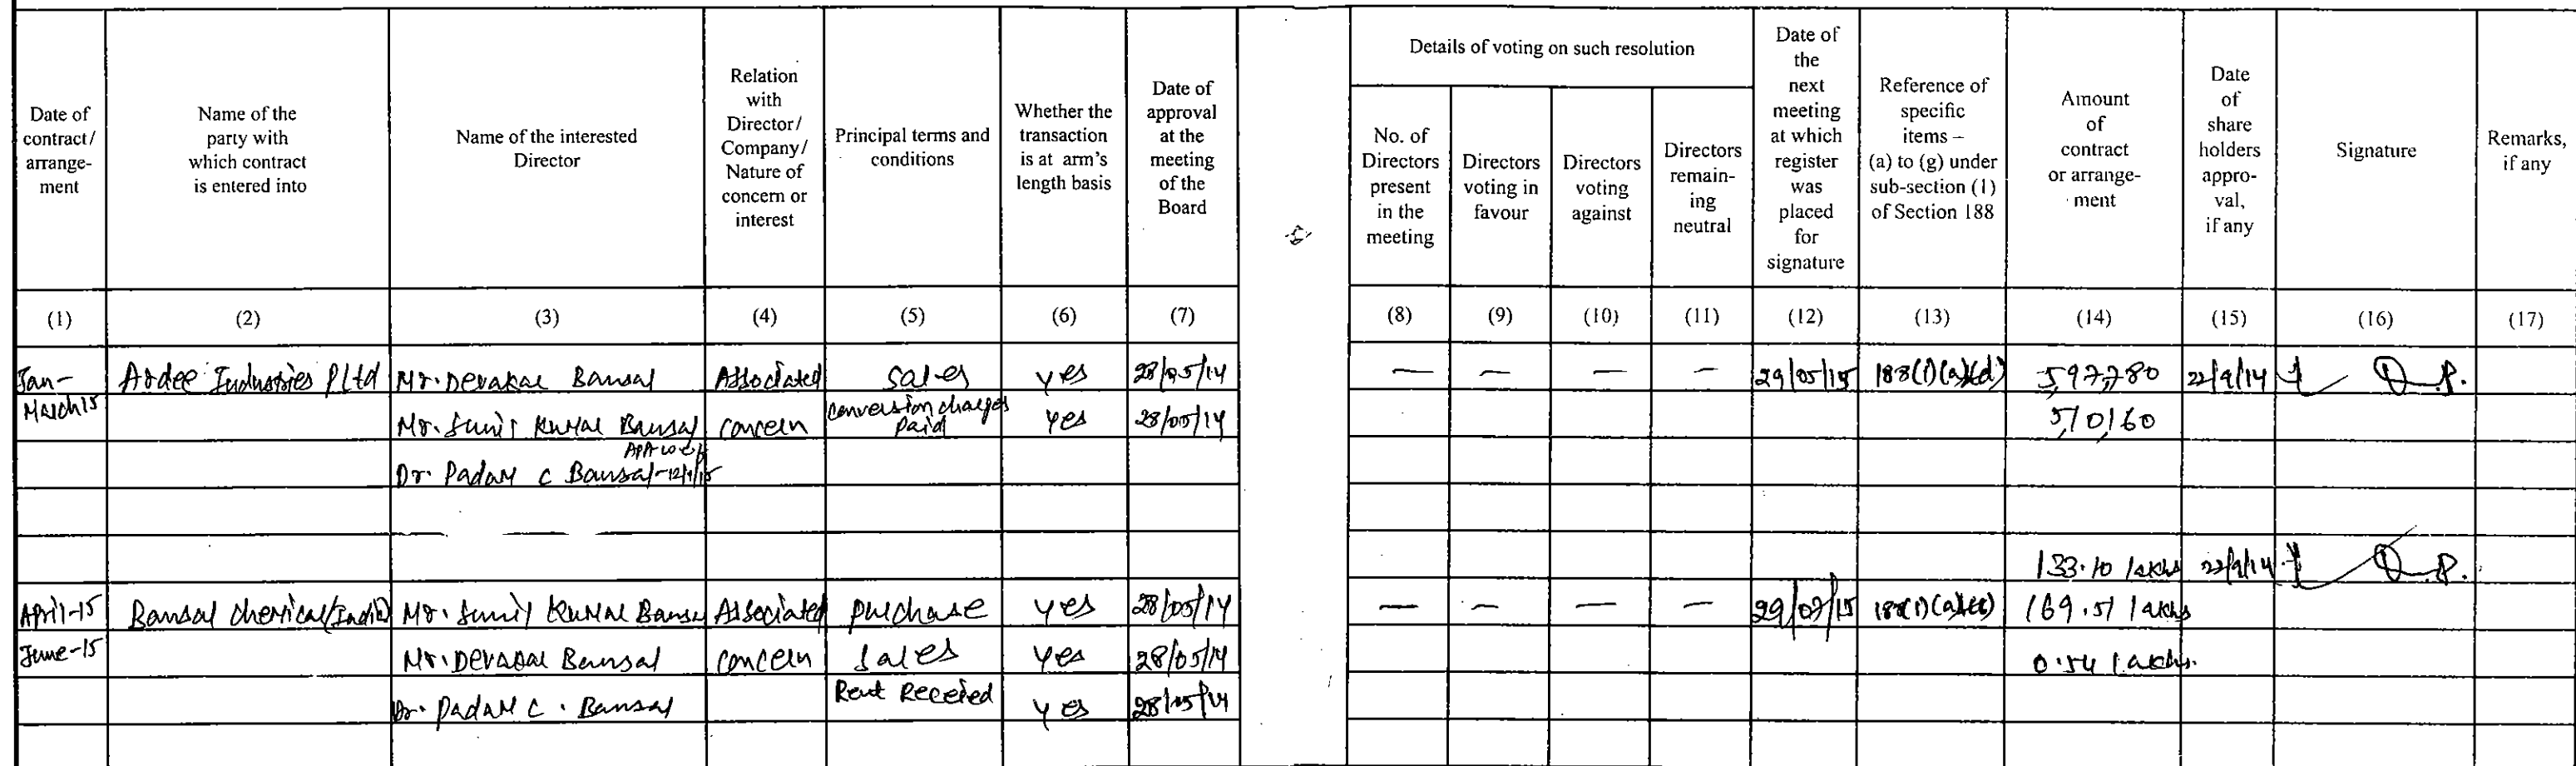 Date of contract/ arrange- ment
Name of the party with which contract is entered into
Name of the interested Director
Relation with Director/ Company/ Nature of concern or interest
Principal terms and conditions
Whether the transaction is at arm's length basis
Date of approval at the meeting of the Board
Details of voting on such resolution
No. of Directors present in the meeting
Directors voting in favour
Directors voting against
Directors remain- ing neutral
Date of the next meeting at which register was placed for signature
Reference of specific items – (a) to (g) under sub-section (1) of Section 188
Amount of contract or arrange- ment
Date of share holders appro- val, if any
Signature
Remarks, if any
(1) (2) (3) (4) (5) (6) (7) (8) (9) (10) (11) (12) (13) (14) (15) (16) (17)
Jan- Ardee Industries P Ltd Mr. Devakar Bansal Associated sales yes 28/05/14 — — — — 29/05/15 188(1)(a)(d) 5,97,780 22/9/14
March 15 Mr. Sunil Kumar Bansal concern conversion charges paid yes 28/05/14 5,10,160
Dr. Padam C Bansal
133.10 lakhs 22/9/14
April-15 Bansal Chemical (India) Mr. Sunil Kumar Bansal Associated purchase yes 28/05/14 — — — — 29/07/15 169.51 lakhs
June-15 Mr. Devakar Bansal concern sales yes 28/05/14 0.54 lakhs.
Dr. Padam C. Bansal Rent Received yes 28/05/14